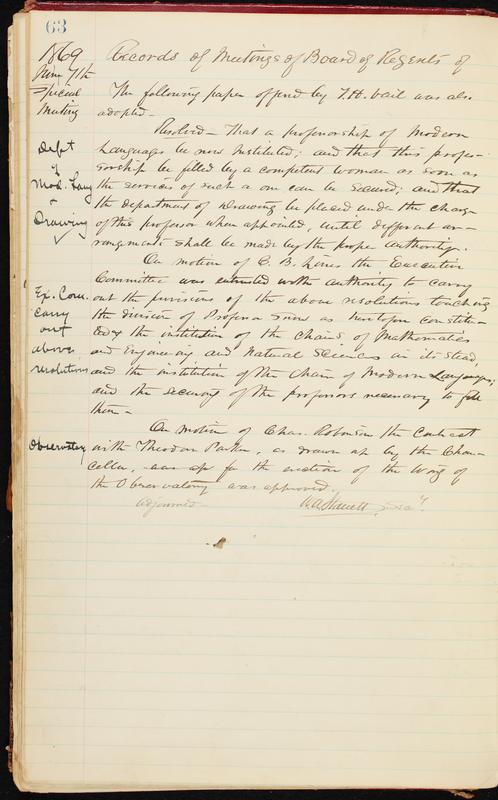 63
1869
June 7th
Special
Meeting
Records of Meetings of Board of Regents of
The following paper offered by T.H. Vail was also
adopted -
Resolved - That a professorship of Modern
Languages be now instituted; and that this profes-
sorship be filled by a competent woman as soon as
the services of such a one can be secured; and that
the department of Drawing be placed under the charge
of this professor when appointed, until different ar-
rangments shall be made by the proper authority.
Dept
of
Mod. Lang
+
Drawing
On motion of C. B. Lines the Executive
Committee was entrusted with authority to carry
out the provisions of the above resolutions touching
the division of Professor Snow as heretofore constitu-
ted & the institution of the Chairs of Mathematics
and Engineering and Natural Sciences in its stead,
and the institution of the Chair of Modern Languages;
and the securing of the professors necessary to fill
them -
Ex. Com.
carry
out
above
resolutions
On motion of Chas. Robinson the Contract
with Theodore Parker, as drawn up by the Chan-
cellor, for the erection of the Wing of
the Observatory was approved.
Observatory
Adjourned
Secy.